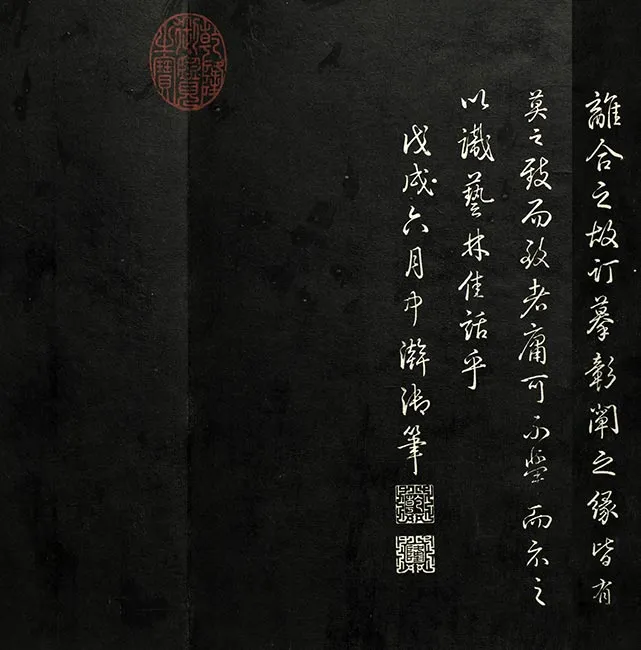 離合之故訂摹彰闡之緣皆有
莫之致而致者庸可不而示之
以識藝林佳話乎
戊戌六月中澣御筆
乾隆御覽之寶